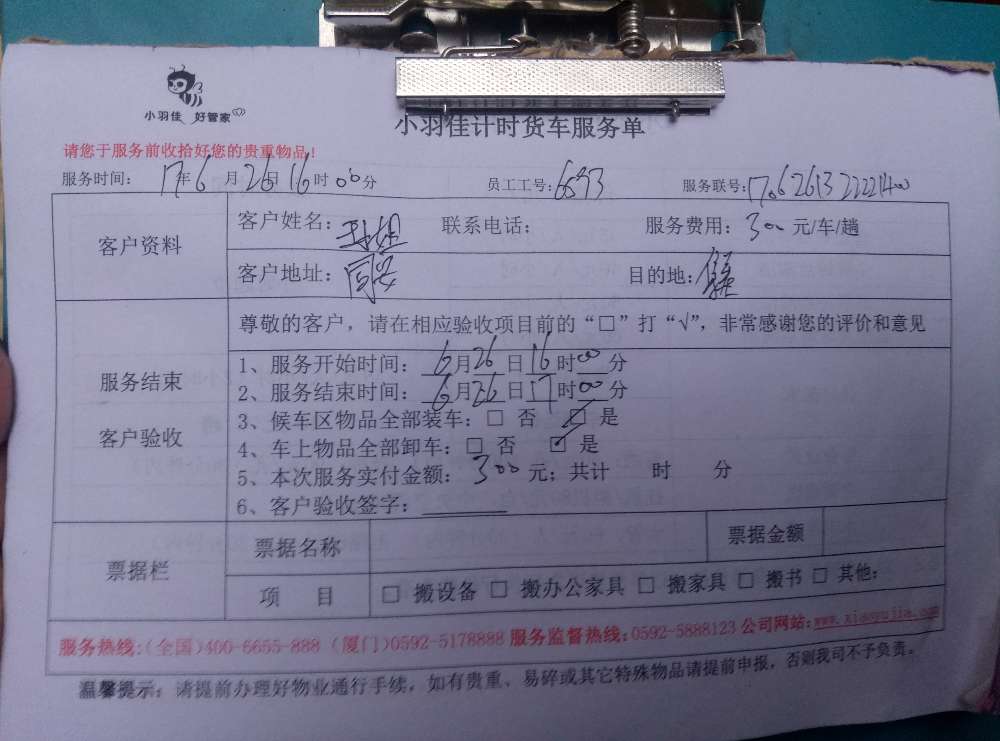 小羽佳 好管家
小羽佳计时货车服务单
请您于服务前收拾好您的贵重物品！
服务时间： 17年6月26日16时00分 员工工号：6693 服务联号：
客户资料
客户姓名： 联系电话： 服务费用：300元/车/趟
客户地址：同安 目的地：
尊敬的客户，请在相应验收项目前的“□”打“√”，非常感谢您的评价和意见
服务结束
客户验收
1、服务开始时间：6月26日16时00分
2、服务结束时间：6月26日17时00分
3、候车区物品全部装车：□ 否 ☑ 是
4、车上物品全部卸车：□ 否 ☑ 是
5、本次服务实付金额：300元；共计 时 分
6、客户验收签字：
票据栏
票据名称 票据金额
项 目 □ 搬设备 □ 搬办公家具 □ 搬家具 □ 搬书 □ 其他：
服务热线：(全国)400-6655-888 (厦门)0592-5178888 服务监督热线：0592-5888123 公司网站：www.xiaoyujia.com
温馨提示：请提前办理好物业通行手续，如有贵重、易碎或其它特殊物品请提前申报，否则我司不予负责。